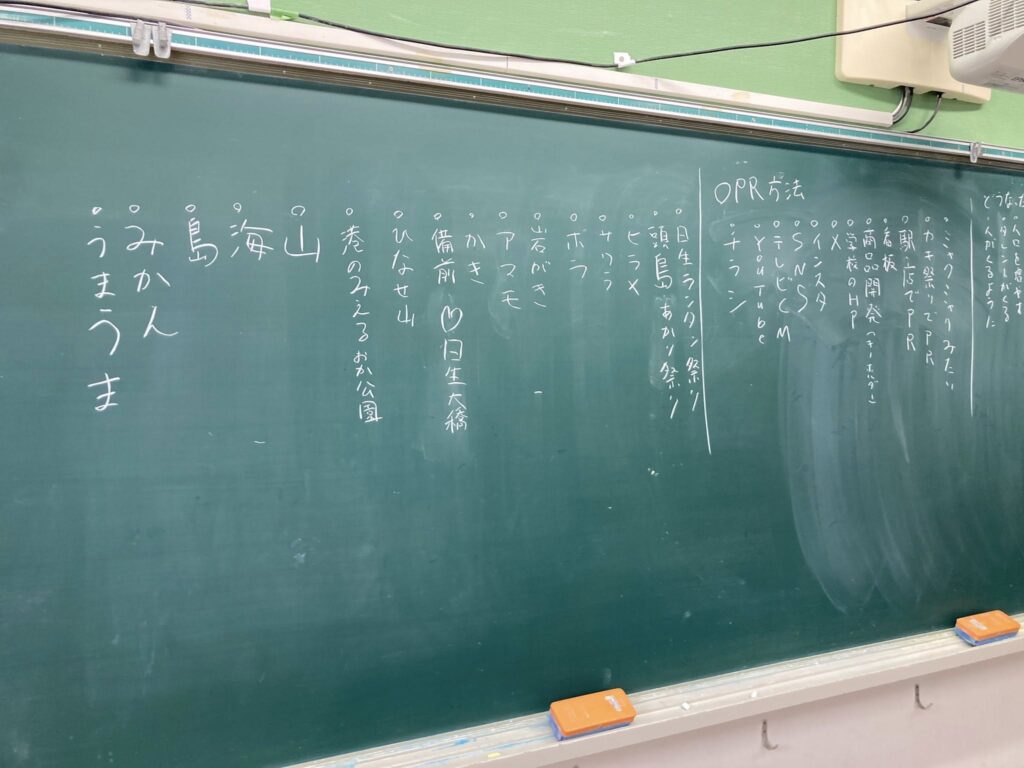 ・人口を増やす
・タレントがくる
・人がくるように
○PR方法
・ミャクミャクみたい
・カキ祭りでPR
・駅・店でPR
・看板
・商品開発(キーホルダー)
・学校のHP
・X
・インスタ
・SNS
・テレビCM
・YouTube
・チラシ
○日生ランタン祭り
○頭島あかり祭り
○ヒラメ
○サワラ
○岩がき
○アマモ
○かき
○備前♡日生大橋
○ひなせ山
○港のみえるおか公園
○山
○海
○島
○みかん
○うまうま